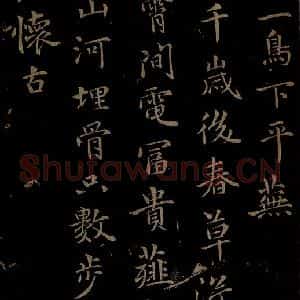 一鳥下平蕪
千歲後春草
霄間電富貴薤
山河埋骨只數步
懷古
Shufawang.CN